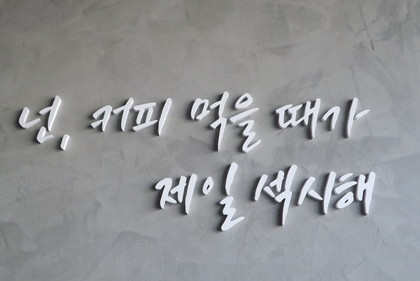 넌, 커피 먹을 때가
제일 섹시해